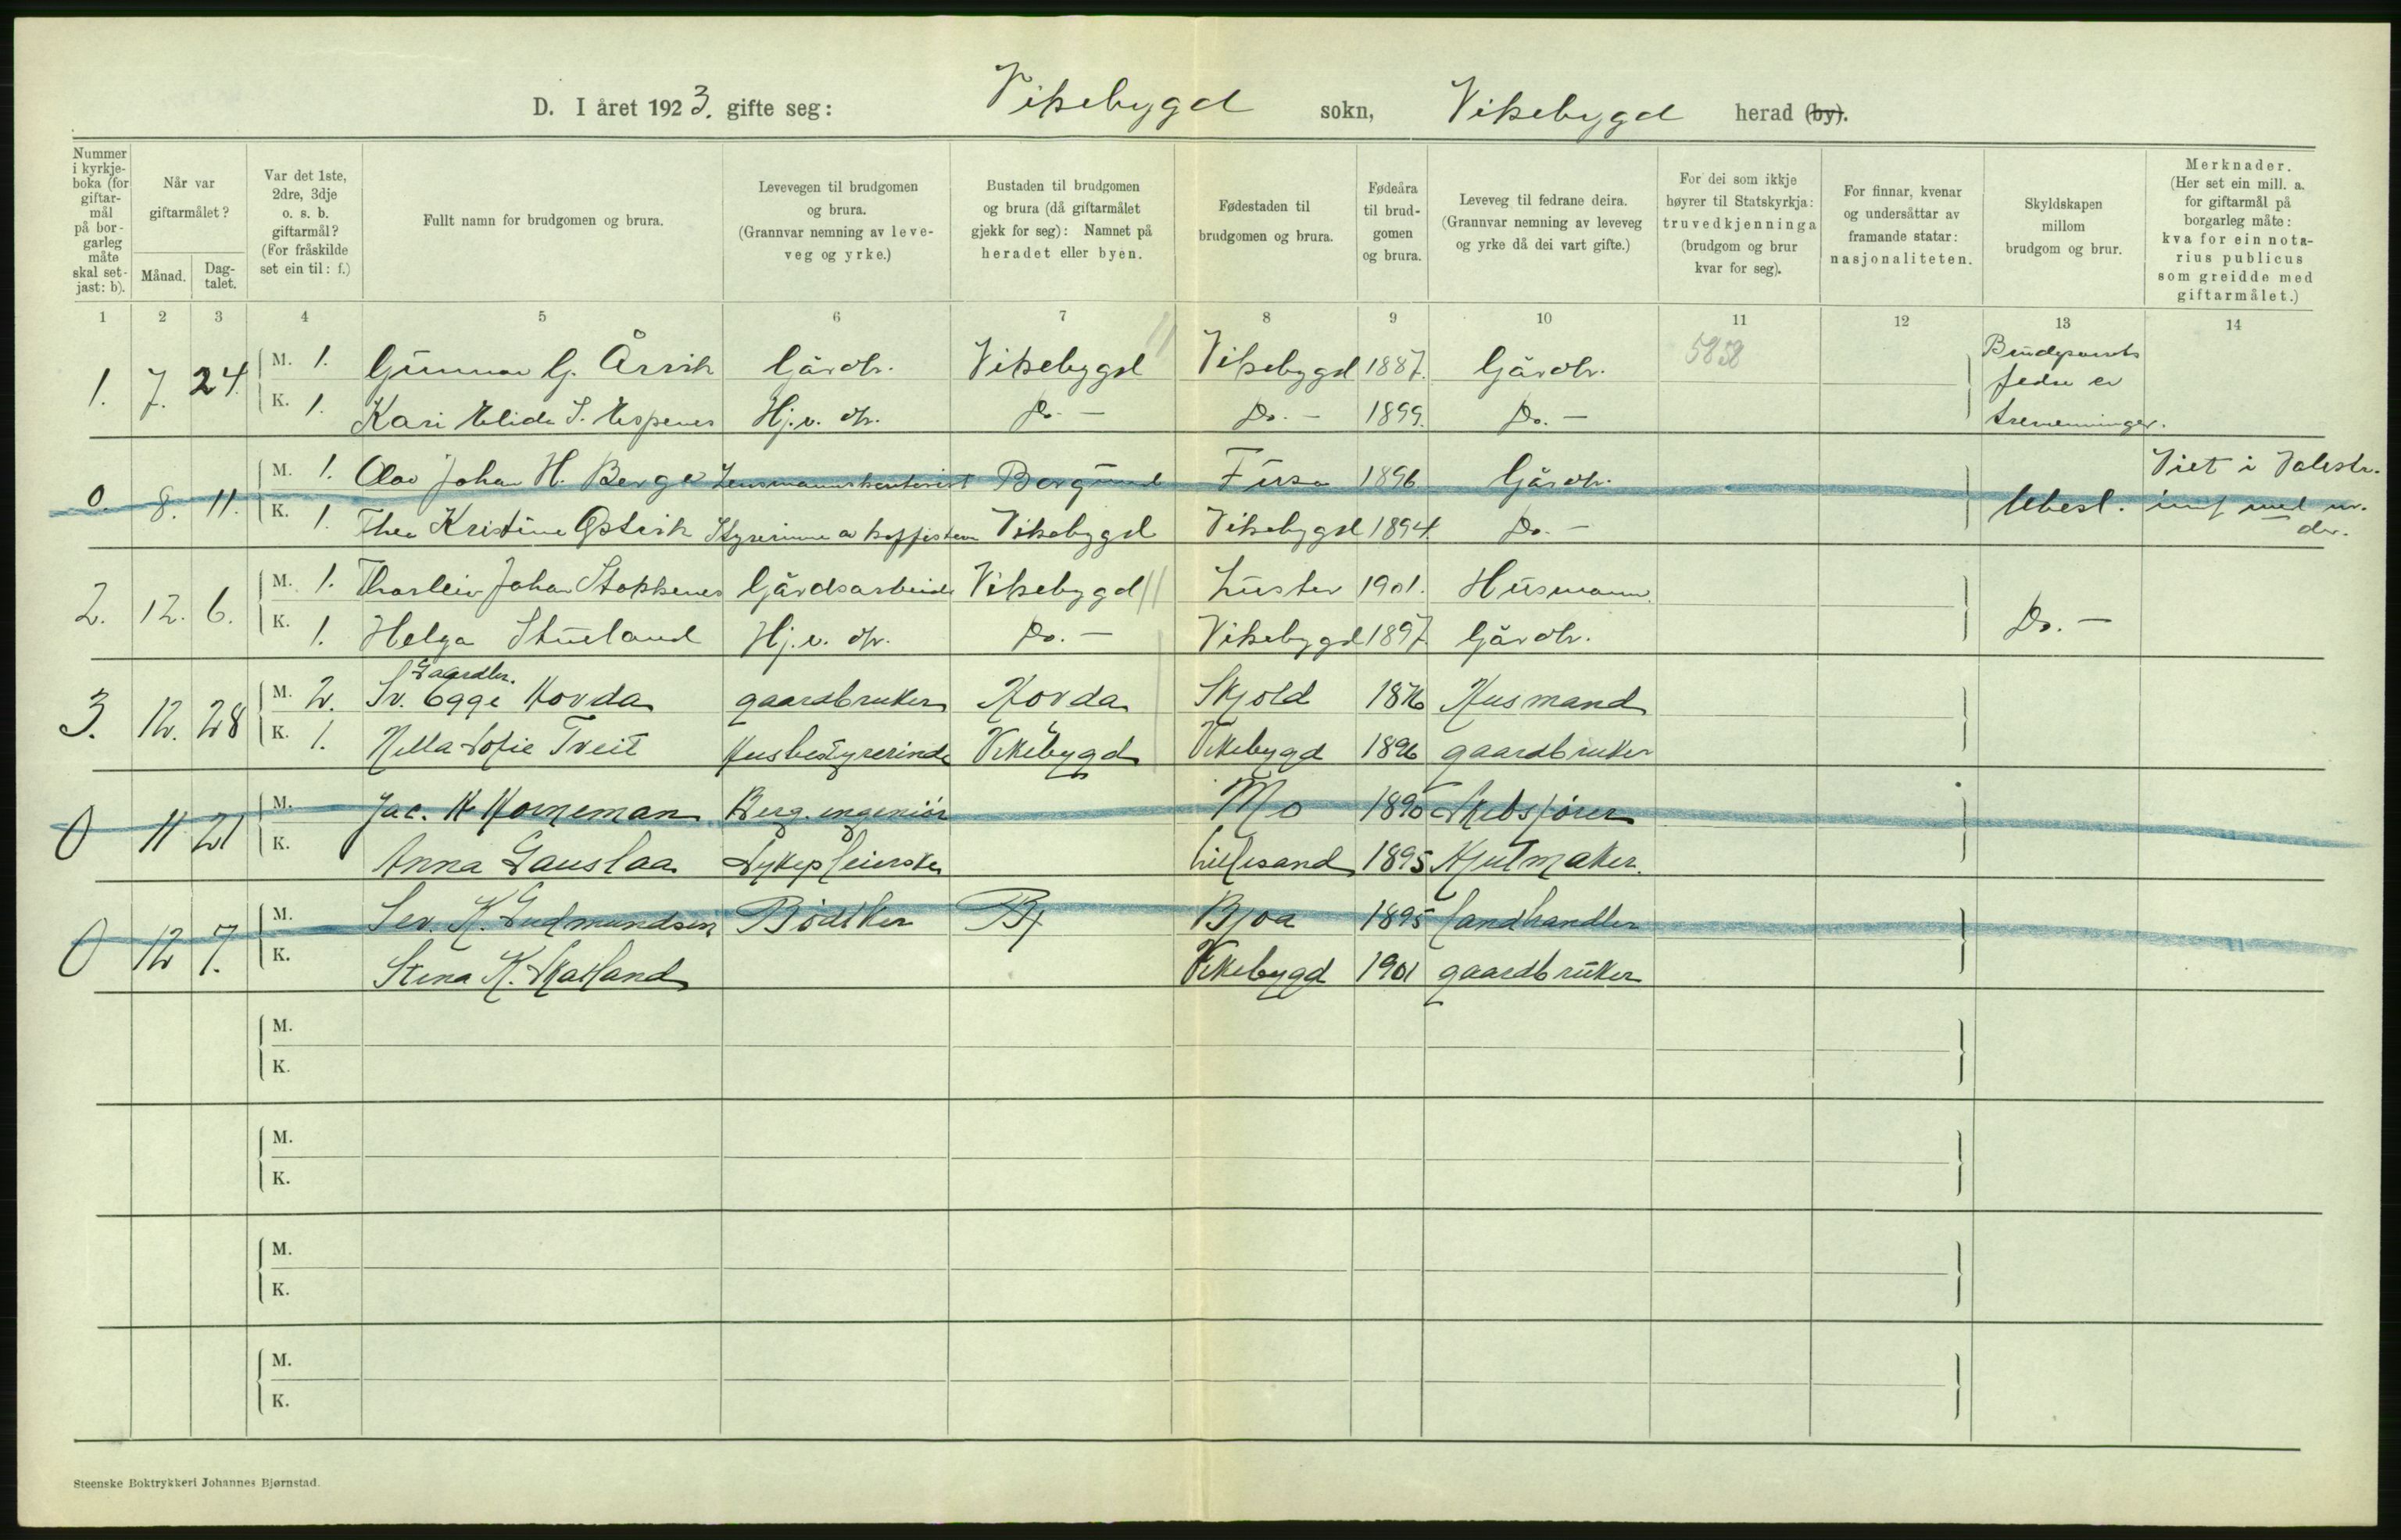 D. I året 1923. gifte seg: Vikebygd sokn, Vikebygd herad (by).
Nummer i kyrkjeboka (for giftarmål på borgarleg måte skal setjast: b).
Når var giftarmålet?
Månad.
Dagtalet.
Var det 1ste, 2dre, 3dje o. s. b. giftarmål? (For fråskilde set ein til: f.)
Fullt namn for brudgomen og brura.
Levevegen til brudgomen og brura. (Grannvar nemning av leveveg og yrke.)
Bustaden til brudgomen og brura (då giftarmålet gjekk for seg): Namnet på heradet eller byen.
Fødestaden til brudgomen og brura.
Fødeåra til brudgomen og brura.
Leveveg til fedrane deira. (Grannvar nemning av leveveg og yrke då dei vart gifte.)
For dei som ikkje høyrer til Statskyrkja: truvedkjenninga (brudgom og brur kvar for seg).
For finnar, kvenar og undersåttar av framande statar: nasjonaliteten.
Skyldskapen millom brudgom og brur.
Merknader. (Her set ein mill. a. for giftarmål på borgarleg måte: kva for ein notarius publicus som greidde med giftarmålet.)
1 2 3 4 5 6 7 8 9 10 11 12 13 14
1. 7. 24. M. 1. Gunnar G. Årvik Gårdbr. Vikebygd Vikebygd 1887. Gårdbr. 5858 Brudeparets fedre er tremenninger.
K. 1. Kari Elida S. Espenes Hj.v. dtr. Do. — Do. — 1899. Do. —
0. 8. 11. M. 1. Olav Johan H. Berge Lensmannskontorist Borgund Fusa 1896 Gårdbr. Ubesl. Viet i Valestr.
K. 1. Thea Kristine Østvik Styrerinne av kaffistova Vikebygd Vikebygd 1894 Do. —
2. 12. 6. M. 1. Thorleiv Johan Stokkenes Gårdsarbeide Vikebygd Luster 1901. Husmann. Do. —
K. 1. Helga Stueland Hj.v. dtr. Do. — Vikebygd 1897 Gårdbr.
3. 12. 28 M. 2. Gaardbr. Sv. Egge Hovda gaardbruker Hovda Skjold 1876 Husmand
K. 1. Nella Sofie Tveit Husbestyrerinde Vikebygd Vikebygd 1896 gaardbruker
0 11 21 M. Jac. K Horneman Berg.ingeniør Mo 1890 Skibsfører
K. Anna Gauslaa Sykepleierske Lillesand 1895 Hjulmaker.
0 12 7. M. Sev. K. Gudmundsen Bødtker Bj Bjoa 1895 landhandler
K. Stena K. Skatland Vikebygd 1901 gaardbruker
M.
K.
M.
K.
M.
K.
M.
K.
Steenske Boktrykkeri Johannes Bjørnstad.